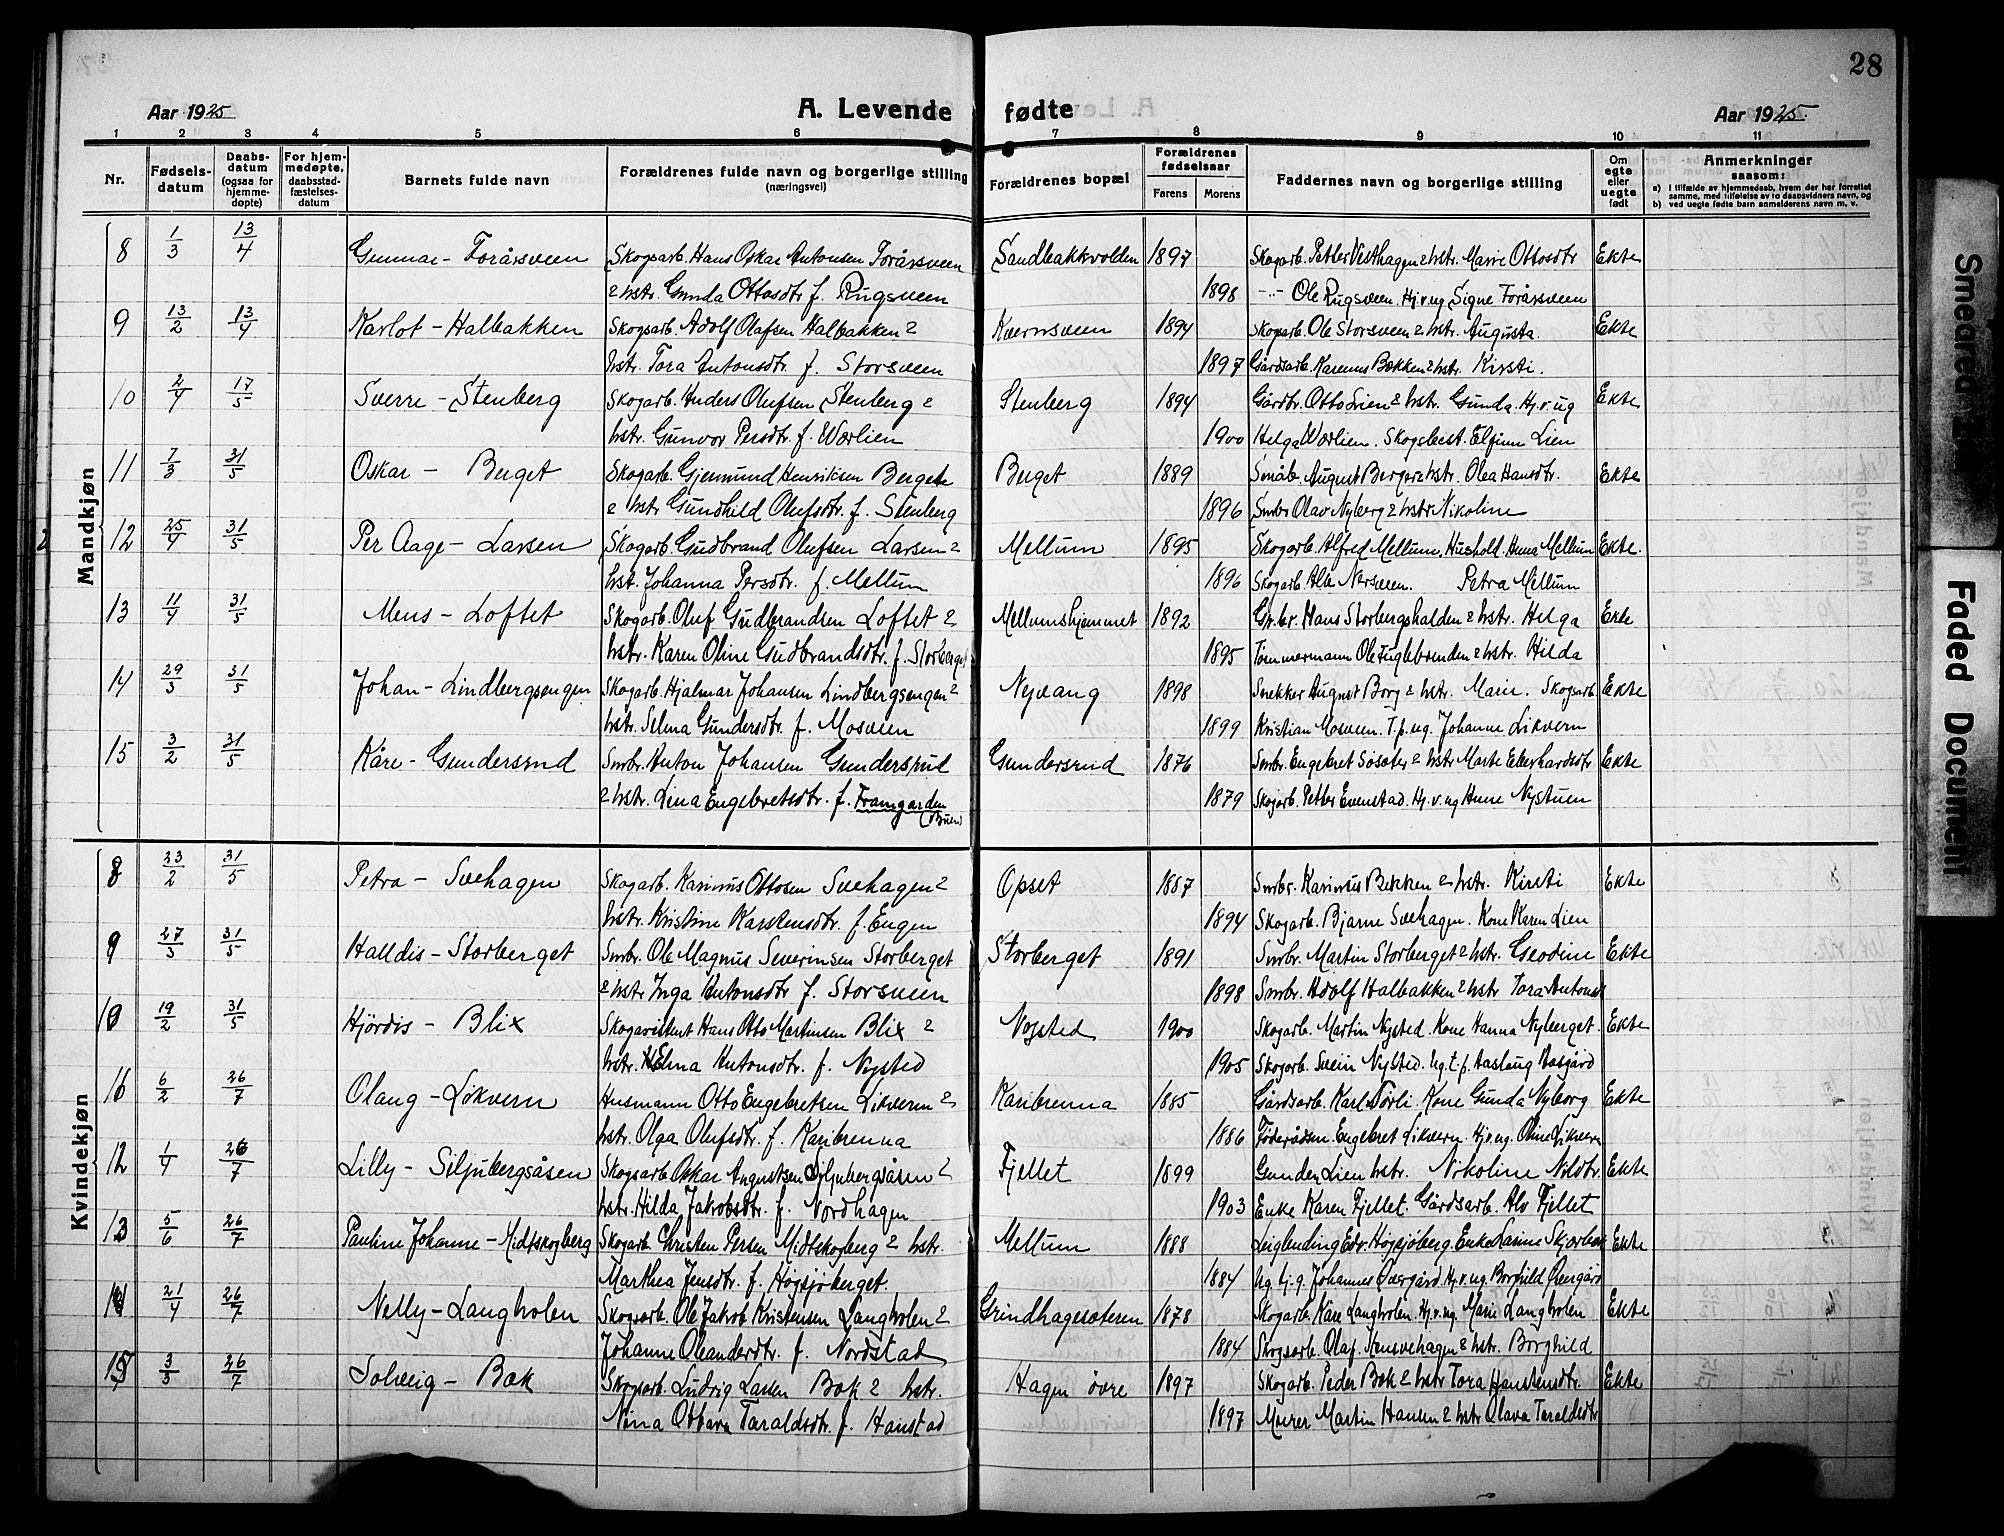 28
Aar 1925 A. Levende fødte Aar 1925
1 2 3 4 5 6 7 8 9 10 11
Nr. Fødsels-datum Daabs-datum (ogsaa for hjemme-døpte) For hjem-medøpte, daabsstad-fæstelses-datum Barnets fulde navn Forældrenes fulde navn og borgerlige stilling (næringsvei) Forældrenes bopæl Forældrenes fødselsaar Farens Morens Faddernes navn og borgerlige stilling Om egte eller uegte født Anmerkninger saasom:
a) I tilfælde av hjemmedaab, hvem der har forrettet samme, med tilføielse av to daabsvidners navn, og
b) ved uegte fødte barn anmelderens navn m. v.
Mandkjøn
8 1/3 13/4 Gunnar - Forårsveen Skogsarb. Hans Oskar Antonsen Forårsveen Sandbakkvolden 1897 Skogarb. Petter Vesthagen & hstr. Marie Ottosdtr Ekte
& hstr. Gunda Ottosdtr f. Rugsveen 1898 -"- Ole Rugsveen. Hj.v.ug Signe Forårsveen
9 13/2 13/4 Karlot - Halbakken Skogsarb. Adolf Olafsen Halbakken & Kvernsveen 1894 Skogarb. Ole Storsveen & hstr. Augusta. Ekte
hstr. Tora Antonsdtr f. Storsveen 1897 Gårdsarb. Karenus Bækken & hstr. Kirsti.
10 2/4 17/5 Sverre - Stenberg Skogarb. Anders Olufsen Stenberg & Stenberg 1894 Gårdbr. Otto Lien & hstr. Gunda. Hj.v.ug Ekte
hstr. Gunvor Persdtr. f. Wærlien 1900 Helga Wærlien. Skogsbest. Elfinn Lien
11 7/3 31/5 Oskar - Berget Skogarb. Gjermund Henriksen Berget Berget 1889 Småb. August Berger & hstr. Olea Hansdtr. Ekte
& hstr Gundhild Olufsdtr. f. Stenberg 1896 Smbr Olav Nyberg & hstr Nikoline
12 25/4 31/5 Per Aage - Larsen Skogarb. Gudbrand Olufsen Larsen & Mellum 1895 Skogarb. Alfred Mellum. Hushold. Anna Mellum Ekte.
hst. Johanna Persdtr. f. Mellum 1896 Skogarb. Nersveen. Petra Mellum
13 11/4 31/5 Mens - Loftet Skogarb. Oluf Gudbrandsen Loftet & Mellumshjemmet 1892 Gr.br. Hans Storbergshalden & hstr. Helga Ekte
hstr. Karen Oline Gudbrandsdtr. f. Storberget 1895 Tømmermann Ole Fuglebrenden & hstr. Hilda
14 29/3 31/5 Johan - Lindbergsengen Skogsarb. Hjalmar Johansen Lindbergsengen & Nyvang 1898 Snekker August Borg & hstr. Marie. Skogsarb. Ekte
hstr. Selma Gundersdtr f. Mosveen 1899 Kristian Mosveen. T.p.ug. Johanne Likvern
15 3/2 31/5 Kåre - Gundersrud Smbr. Anton Johansen Gundersrud Gundersrud 1876 Smbr. Engebret Søsæter & hstr Marte Eberhardsdtr Ekte
& hstr. Lina Engebretsdtr. f. Framgarden (Buen) 1879 Skogarb. Petter Evenstad. Hj.v.ug Anne Nystuen
Kvindekjøn
8 23/2 31/5 Petra - Svehagen Skogarb. Karinus Ottosen Svehagen & Opset 1887 Smbr. Karinius Bekken & hstr. Kirsti Ekte
hstr. Kristine Karstensdtr f. Engen 1894 Skogarb. Bjarne Svehagen. Kone Karen Lien
9 27/3 31/5 Halldis - Storberget Smbr. Ole Magnus Severinsen Storberget Storberget 1891 Smbr. Martin Storberget & hstr. Geodine Ekte
& hstr Inga Antonsdtr f. Storsveen 1898 Smbr. Adolf Halbakken & hstr Tora Antonsdt
10 19/2 31/5 Hjördis - Blix Skogassistent Hans Otto Martinsen Blix & Nysted 1900 Skogarb. Martin Nysted. Kone Hanna Nyberget. Ekte
hstr. Elma Antonsdtr. f. Nysted 1905 Skogarb Svein Nysted. ug.t.p. Aaslaug Aasgård
11 6/2 26/7 Olaug - Løkvern Husmann Otto Engebretsen Likvern & Karibrenna 1885 Gårdsarb. Karl Sørli. Kone Gunda Nyborg Ekte
hstr. Olga Olufsdtr. f. Karibrenna 1886 Føderådsm. Engebret Likvern. Hj.v.ug. Oline Likvern
12 1/4 26/7 Lilly - Siljubergsåsen Skogsarb Oskar Augustsen Siljubergsåsen & Fjellet 1899 Gunder Lien hstr. Nikoline Nildtr. Ekte
hstr. Hilda Jakobsdtr. f. Nordhagen 1903 Enke Karen Fjellet. Gårdsarb. Alv Fjellet
13 5/6 26/7 Pauline Johanne - Midtskogberg Skogarb. Christen Persen Midtskogberg & hstr. Mellum 1888 Leiglending Edv. Høgsjøberg. Enke Lanne Skjærbek Ekte
Marthea Jensdtr. f. Høgsjøberget. 1884 Ug. tj.g. Johannes Øvergård. Hj.v.ug. Borghild Øvergård
14 21/4 26/7 Nelly - Langholen Skogsarb. Ole Jakob Kristensen Langholen & Grindhagesæteren 1878 Skogarb. Kåre Langholen. Hj.v.ug. Marie Langholen Ekte
Johanne Oleanderdtr. f. Nordstad 1884 Skogsarb. Olaf Hansvehagen & hstr. Borghild
15 3/3 26/7 Solveig - Bæk Skogsarb. Ludvig Larsen Bæk & hstr. Hagen øvre 1897 Skogarb. Peder Bæk & hstr Tora Hanstensdtr. Ekte
Nina Ottava Taraldsdtr. f. Hanstad 1897 Murer Martin Hansen & hstr Olava Taraldsdtr
Smearede
Faded Document